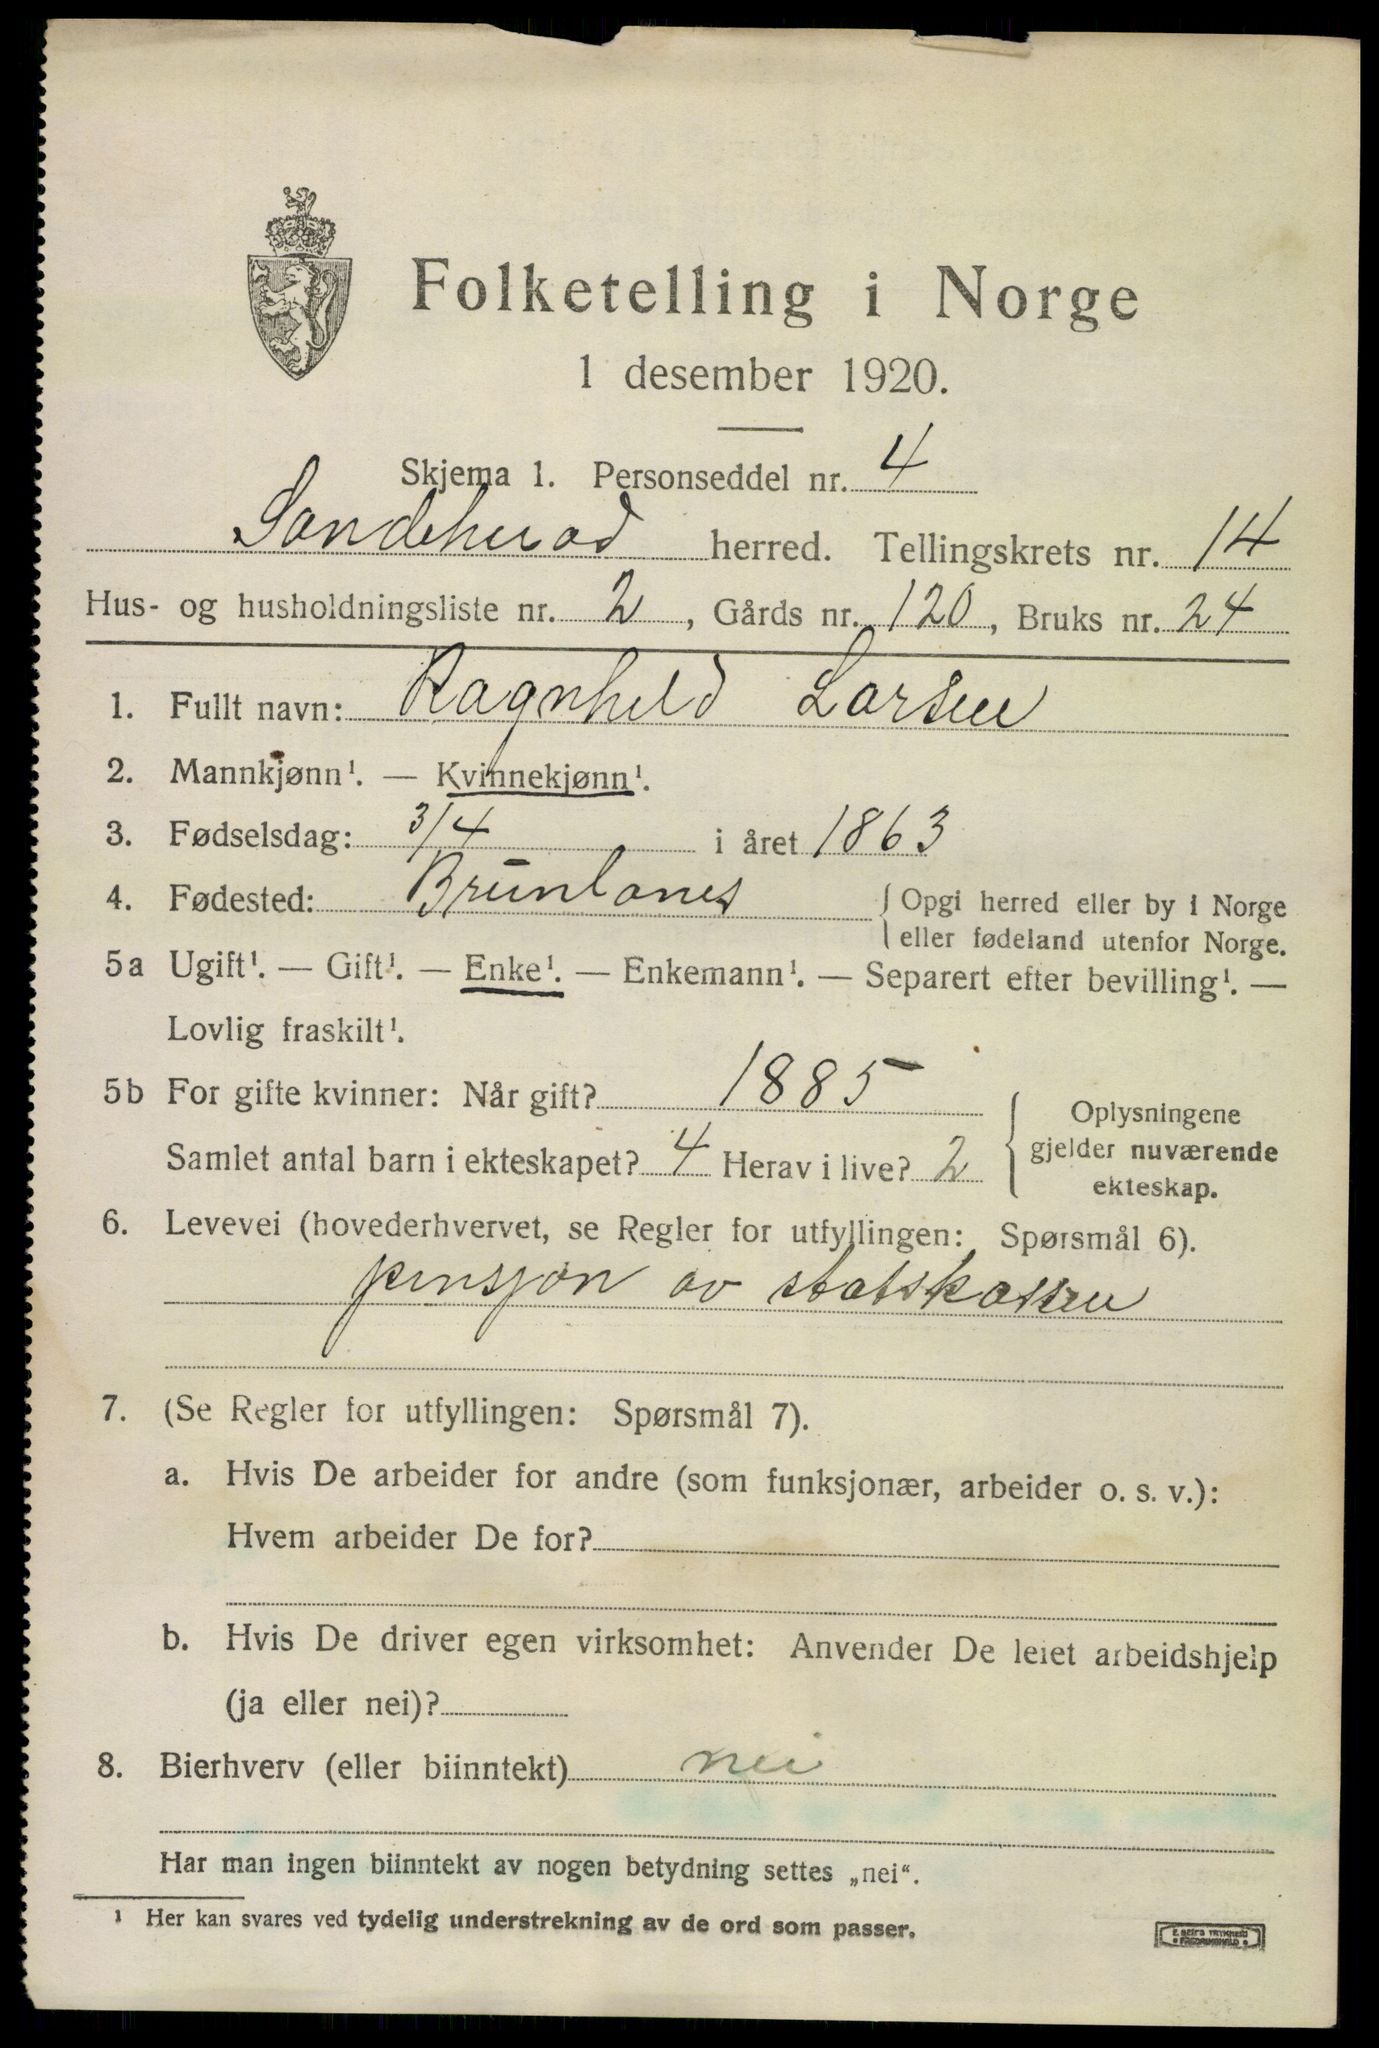 Folketelling i Norge
1 desember 1920.
Skjema 1. Personseddel nr. 4
Sandeherad herred. Tellingskrets nr. 14
Hus- og husholdningsliste nr. 2, Gårds nr. 120, Bruks nr. 24
1. Fullt navn: Ragnhild Larsen
2. Mannkjønn¹. — Kvinnekjønn¹.
3. Fødselsdag: 3/4 i året 1863
4. Fødested: Brunlanes { Opgi herred eller by i Norge
eller fødeland utenfor Norge.
5a Ugift¹. — Gift¹. — Enke¹. — Enkemann¹. — Separert efter bevilling¹. —
Lovlig fraskilt¹.
5b For gifte kvinner: Når gift? 1885
Samlet antal barn i ekteskapet? 4 Herav i live? 2
Oplysningene
gjelder nuværende
ekteskap.
6. Levevei (hovederhvervet, se Regler for utfyllingen: Spørsmål 6).
pensjon av statskassen
7. (Se Regler for utfyllingen: Spørsmål 7).
a. Hvis De arbeider for andre (som funksjonær, arbeider o. s. v.):
Hvem arbeider De for?
b. Hvis De driver egen virksomhet: Anvender De leiet arbeidshjelp
(ja eller nei)?
8. Bierhverv (eller biinntekt) nei
Har man ingen biinntekt av nogen betydning settes „nei“.
¹ Her kan svares ved tydelig understrekning av de ord som passer.